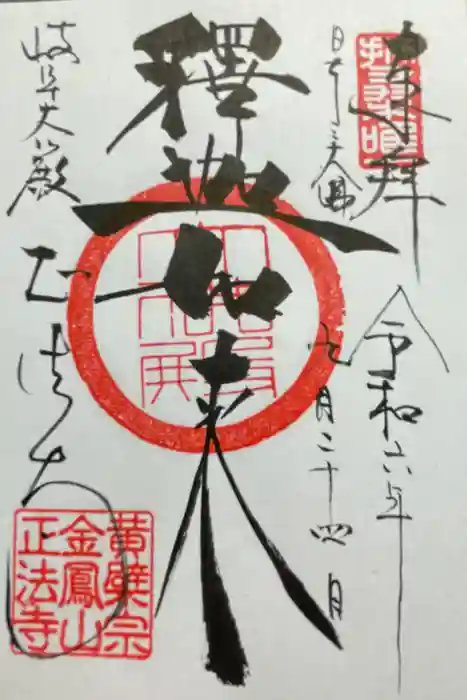 来拝
日本三大佛
令和六年
九月二十四日
釋迦如来
岐阜大仏殿
正法寺
黄檗宗
金鳳山
正法寺